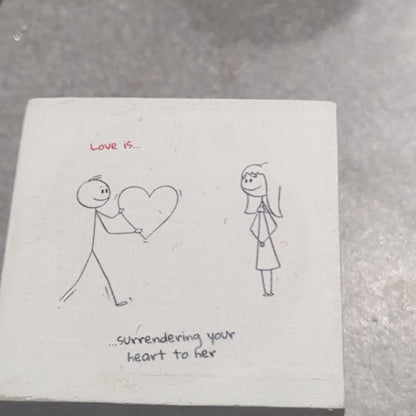 Love is...
...surrendering your
heart to her